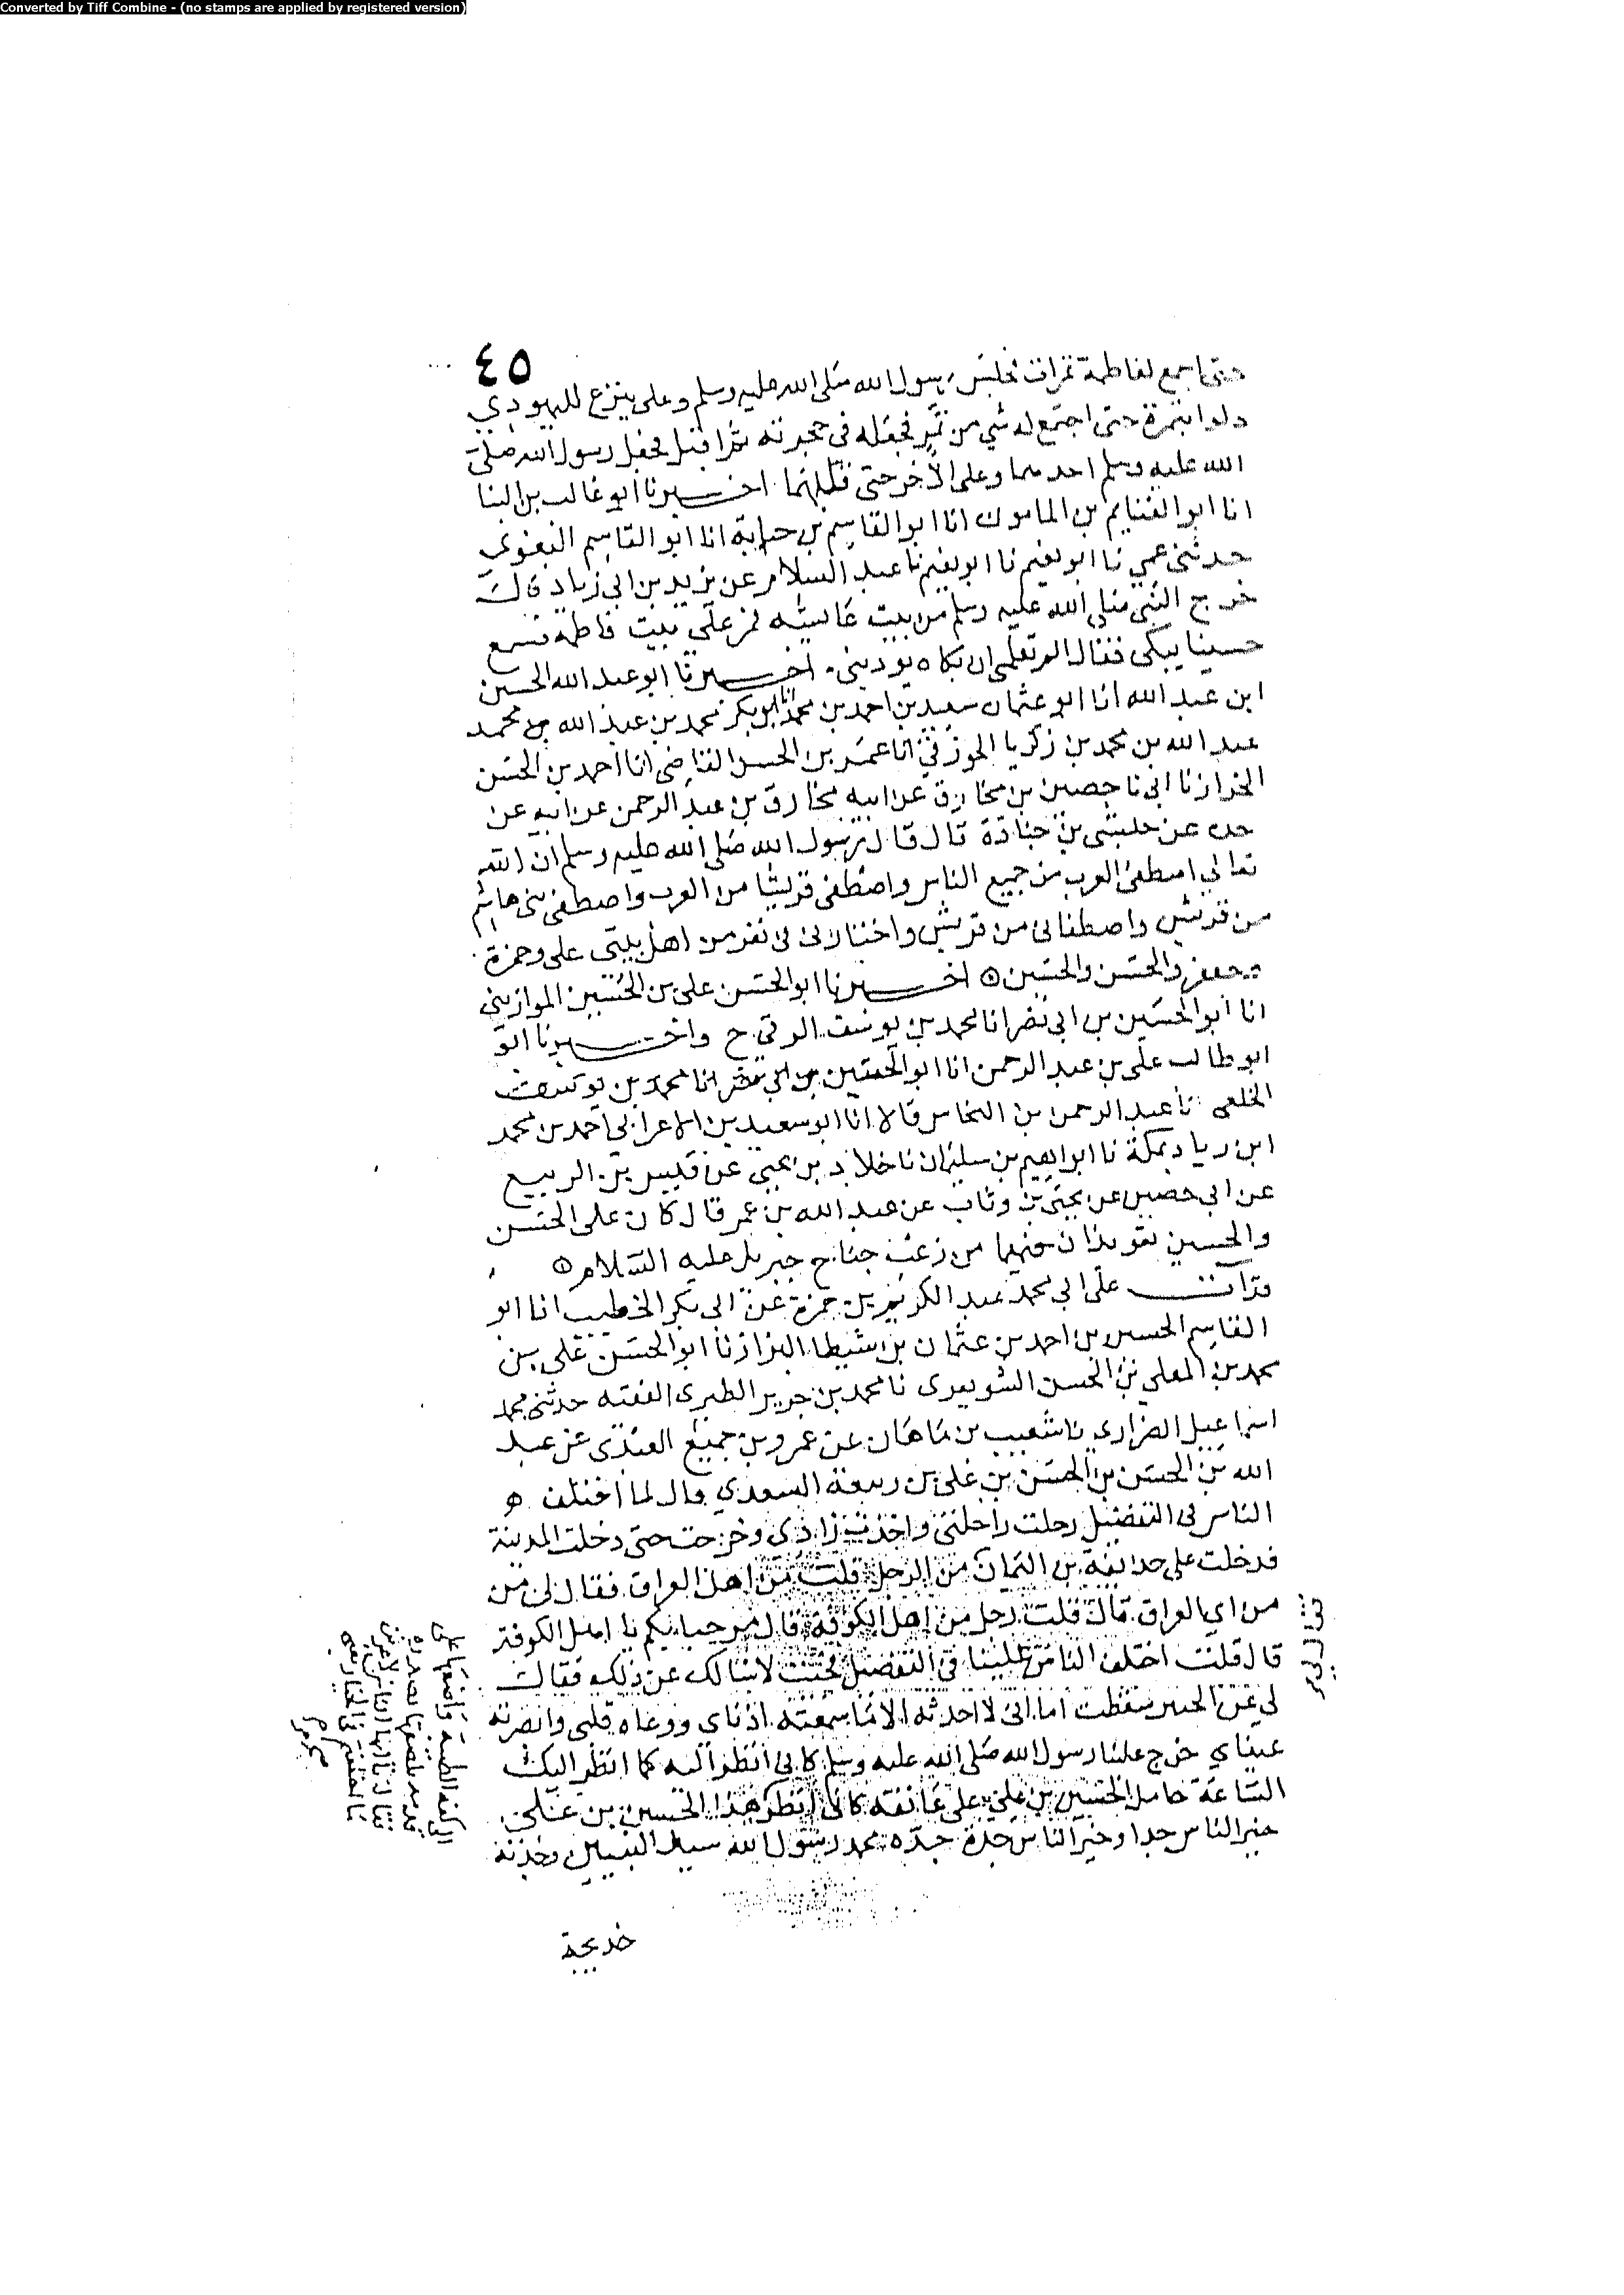 Converted by Tiff Combine - (no stamps are applied by registered version)
٤٥
حتى اجمع لفاطمة تمرات فجلس رسول الله صلى الله عليه وسلم وعلى ينزع لليهودي
دلوا بتمرة حتى اجتمع له شي من تمر فجعله في حجزته ثم اقبل فحمل رسول الله صلى
الله عليه وسلم احدهما وعلى الاخر حتى قلبهما اخبرنا ابو غالب بن البنا
انا ابو الغنايم بن المامون انا ابو القاسم بن حبابة انا ابو القاسم البغوي
حدثني عمي نا ابو نعيم نا ابو نعيم نا عبد السلام عن يزيد بن ابي زياد قال
خرج النبي صلى الله عليه وسلم من بيت عايشه فمر على بيت فاطمه فسمع
حسينا يبكى فقال الم تعلمى ان بكاه يوذيني اخبرنا ابو عبد الله الحسين
ابن عبد الله انا ابو عثمان سعيد بن احمد بن محمد انا ابو بكر محمد بن عبد الله بن محمد
عبد الله بن محمد بن زكريا الجوزقي انا عمر بن الحسن القاضى انا احمد بن الحسن
الخزاز نا ابى نا حصين بن مخارق عن ابيه مخارق بن عبد الرحمن عن ابيه عن
جده عن حبشى بن جنادة قال قال رسول الله صلى الله عليه وسلم ان الله
تعالى اصطفى العرب من جميع الناس واصطفى قريشا من العرب واصطفى بنى هاشم
من قريش واصطفانى من قريش واختارنى فى نفر من اهل بيتى على وحمزة
وجعفر والحسن والحسين اخبرنا ابو الحسن على بن الحسين الموازيني
انا ابو الحسين بن ابى نصر انا محمد بن يوسف الرقى ح واخبرنا ابو
ابو طالب على بن عبد الرحمن انا ابو الحسن
الخلعى نا عبد الرحمن بن النحاس قالا انا ابو سعيد بن الاعرابي احمد بن محمد
ابن زياد بمكة نا ابراهيم بن سليمان نا خلاد بن يحيى عن قيس بن الربيع
عن ابى حصين عن يحيى بن وثاب عن عبد الله بن عمر قال كان على الحسن
والحسين تعويذان فيهما من زغب جناح جبريل عليه السلام
قرات على ابى محمد عبد الكريم بن حمزة عن ابى بكر الخطيب انا ابو
القاسم الحسين بن احمد بن عثمان بن شيطا البزاز نا ابو الحسن على بن
محمد بن المعلى بن الحسن الشونيزى نا محمد بن جرير الطبرى الفقيه حدثنى محمد
اسماعيل الضرارى نا شعيب بن ماهان عن عمرو بن جميع العبدى عن عبد
الله بن الحسن بن الحسن بن على بن ربيعة السعدي قال لما اختلف
الناس فى التفضيل رحلت راحلتى واخذت زادى وخرجت حتى دخلت المدينة
فدخلت على حذيفة بن اليمان من الرجل قلت من اهل العراق فقال لى من
من اى العراق قال قلت رجل من اهل الكوفة قال مرحبا بكم يا اهل الكوفة
قال قلت اختلف الناس علينا فى التفضيل فجئت لاسالك عن ذلك فقال
لى على الخبير سقطت اما انى لا احدثك الا ما سمعته اذناى ووعاه قلبى وابصرته
عيناي خرج علينا رسول الله صلى الله عليه وسلم كانى انظر اليه كما انظر اليك
الساعة حامل الحسين بن على على عاتقه كانى انظر
هذا الحسين بن على
خير الناس جدا وخير الناس جدة جده محمد رسول الله سيد النبيين وجدته
خديجة
الى كفه الطيبة واضعها على
قدمه يلصقها بصدره
فقال يا ايها الناس